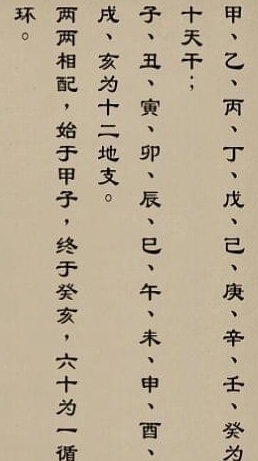 甲、乙、丙、丁、戊、己、庚、辛、壬、癸为
十天干；
子、丑、寅、卯、辰、巳、午、未、申、酉、
戌、亥为十二地支。
两两相配，始于甲子，终于癸亥，六十为一循
环。